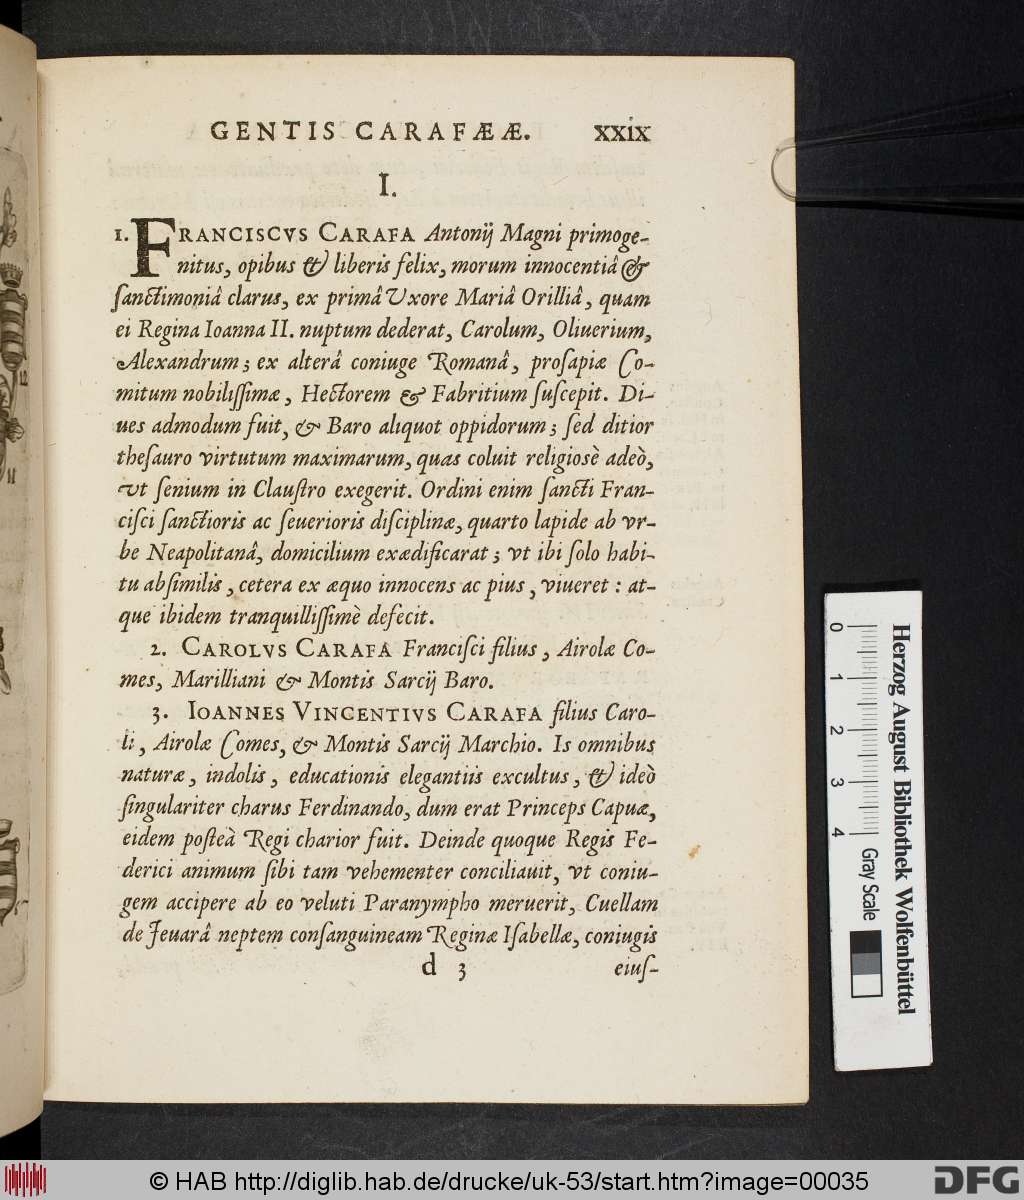 GENTIS CARAFÆÆ. XXIX
I.
1. FRANCISCVS CARAFA Antonij Magni primoge-
nitus, opibus & liberis felix, morum innocentiâ &
ſanctimoniâ clarus, ex primâ Vxore Mariâ Orilliâ, quam
ei Regina Ioanna II. nuptum dederat, Carolum, Oliuerium,
Alexandrum; ex alterâ coniuge Romanâ, proſapiæ Co-
mitum nobiliſſimæ, Hectorem & Fabritium ſuſcepit. Di-
ues admodum fuit, & Baro aliquot oppidorum; ſed ditior
theſauro virtutum maximarum, quas coluit religiosè adeò,
vt ſenium in Clauſtro exegerit. Ordini enim ſancti Fran-
ciſci ſanctioris ac ſeuerioris diſciplinæ, quarto lapide ab vr-
be Neapolitanâ, domicilium exædificarat; vt ibi ſolo habi-
tu abſimilis, cetera ex æquo innocens ac pius, viueret: at-
que ibidem tranquilliſſimè defecit.
2. CAROLVS CARAFA Franciſci filius, Airolæ Co-
mes, Marilliani & Montis Sarcij Baro.
3. IOANNES VINCENTIVS CARAFA filius Caro-
li, Airolæ Comes, & Montis Sarcij Marchio. Is omnibus
naturæ, indolis, educationis elegantiis excultus, & ideò
ſingulariter charus Ferdinando, dum erat Princeps Capuæ,
eidem poſteà Regi charior fuit. Deinde quoque Regis Fe-
derici animum ſibi tam vehementer conciliauit, vt coniu-
gem accipere ab eo veluti Paranympho meruerit, Cuellam
de Jeuarâ neptem conſanguineam Reginæ Iſabellæ, coniugis
d 3 eiuſ-
0 1 2 3 4
Gray Scale
Herzog August Bibliothek Wolfenbüttel
12
11
© HAB http://diglib.hab.de/drucke/uk-53/start.htm?image=00035
DFG